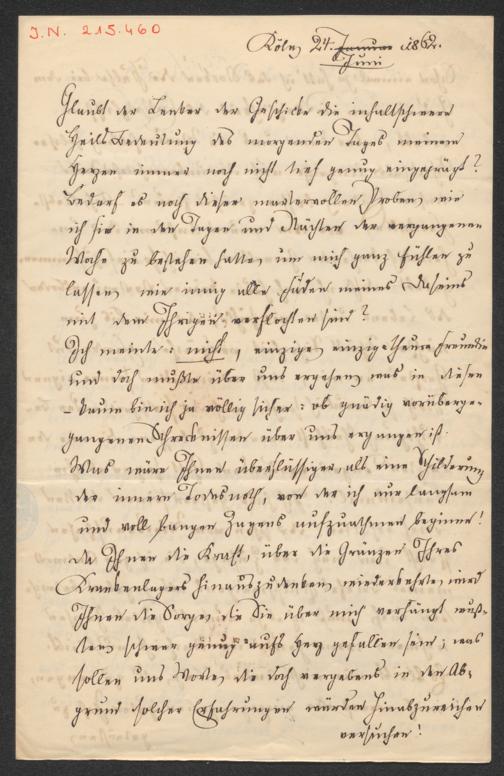 J.N. 215.460
Köln, 24. Januar 1862.
Juni
Glaubt der Lenker der Geschicke die inhaltschwere
Heilsbedeutung des morgenden Tages meinem
Herzen immer noch nicht tief genug eingeprägt?
Bedarf es noch dieser martervollen Proben, wie
ich sie in den Tagen und Nächten der vergangenen
Woche zu bestehen hatte, um mich ganz fühlen zu
lassen, wie innig alle Fäden meines Daseins
mit dem Ihrigen verflochten sind?
Ich meinte: nicht, einzige, einzig theure Freundin
und doch mußte über uns ergehen, was in diesen
– kaum bin ich ja völlig sicher: ob gnädig vorüberge-
gangenen Schrecknissen über uns ergangen ist.
Was wäre Ihnen überflüssiger, als eine Schilderung
der innern Todesnoth, von der ich nur langsam
und voll bangen Zagens aufzuathmen beginne!
Da Ihnen die Kraft, über die Gränzen Ihres
Krankenlagers hinauszudenken, wiederkehrte, wird
Ihnen die Sorge, die Sie über mich verhängt wuß-
ten, schwer genug aufs Herz gefallen sein; was
sollen uns Worte, die doch vergebens in den Ab-
grund solcher Erfahrungen würden hinabzureichen
versuchen!